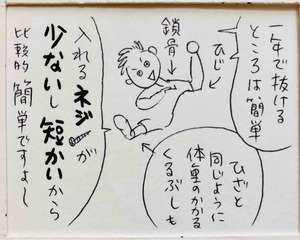 一年で抜ける
ところは簡単
ひじ
鎖骨
ひざと
同じように
体重のかかる
くるぶしも
入れるネジが
少ないし短かいから
比較的簡単ですよ〜